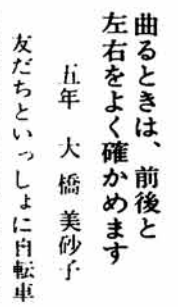 曲るときは、前後と
左右をよく確かめます
五年 大橋美砂子
友だちといっしょに自転車